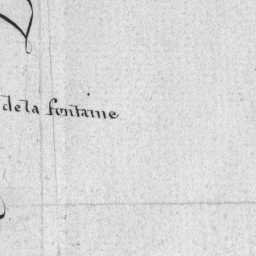 de la fontaine